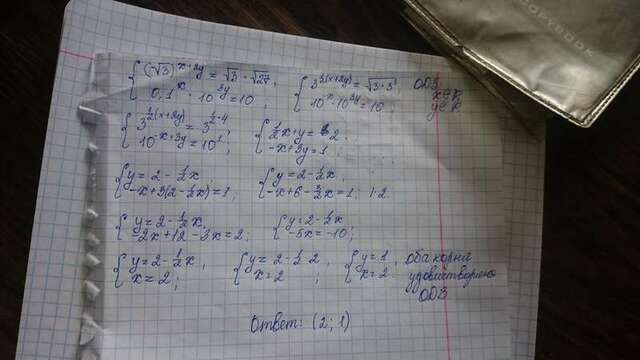 {(√3)^(x+2y) = √3 · √27, 0,1^x · 10^(3y) = 10;
{3^(½(x+2y)) = √(3·3³), 10^(-x) · 10^(3y) = 10; ОДЗ x∈R y∈R
{3^(½(x+2y)) = 3^(½·4), 10^(-x+3y) = 10¹;
{½x+y = 2, -x+3y = 1.
{y = 2 - ½x, -x+3(2-½x) = 1,
{y = 2 - ½x, -x+6 - 3/2x = 1, |·2
{y = 2 - ½x, -2x+12 - 3x = 2,
{y = 2 - ½x -5x = -10;
{y = 2 - ½x, x = 2;
{y = 2 - ½·2, x = 2;
{y = 1, x = 2. оба корня
удовлетворено
ОДЗ
Ответ: (2; 1)
COPYBOOK